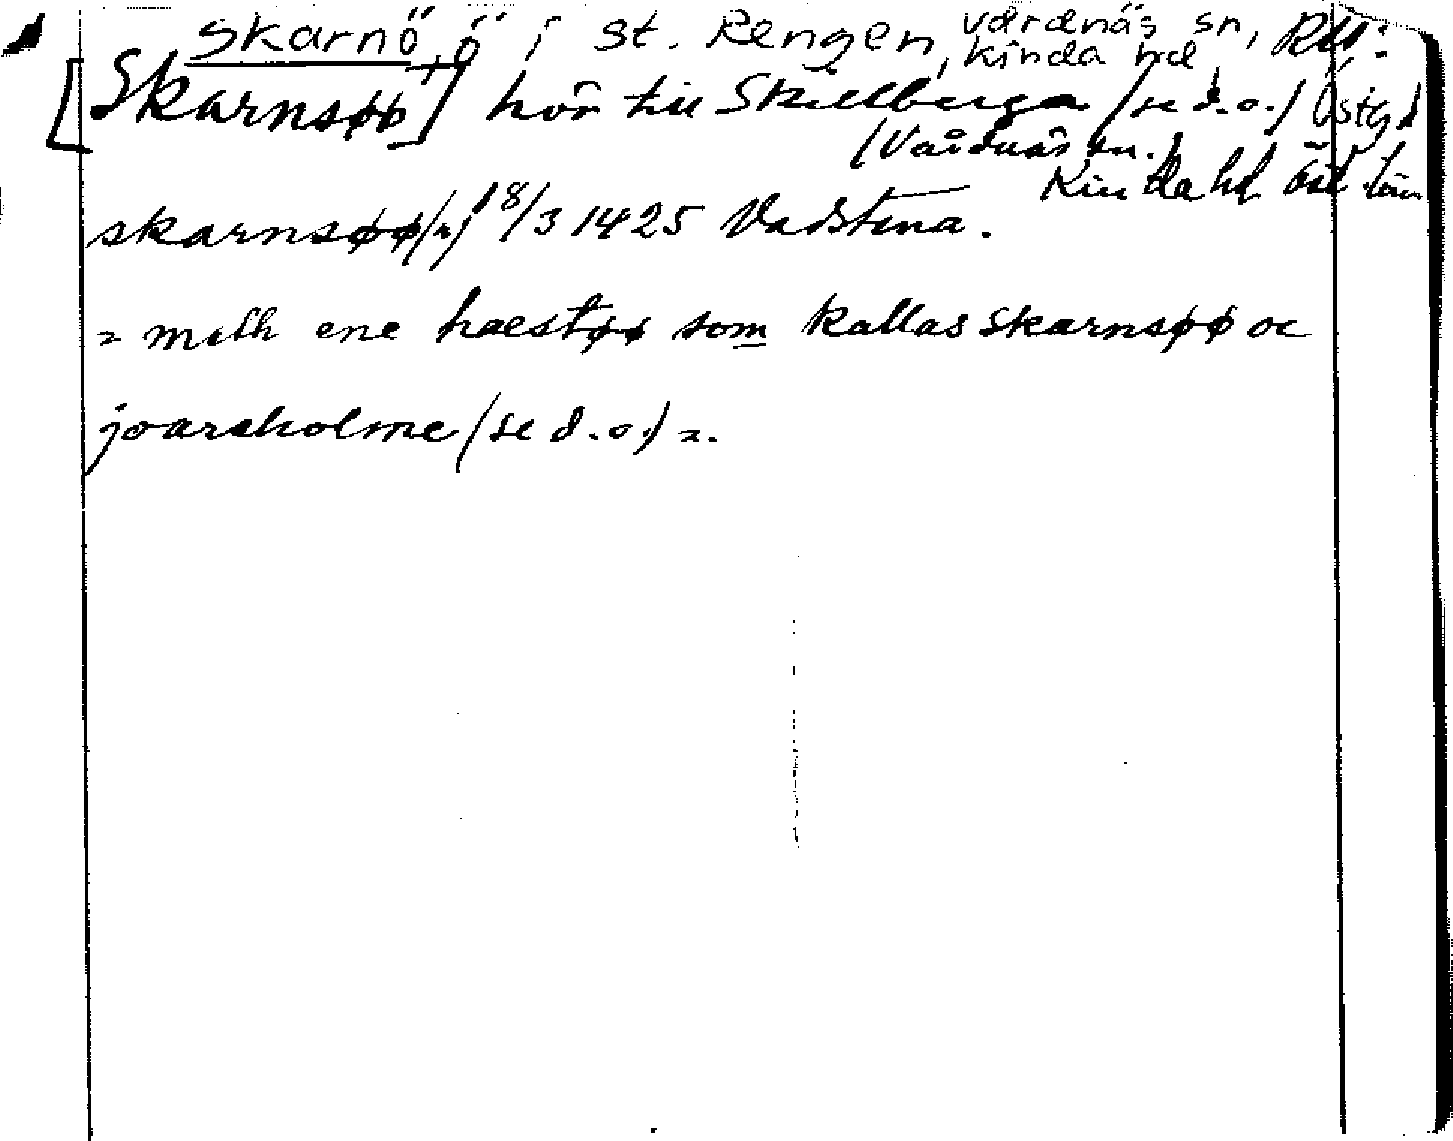 Skarnö, ö i St. Rengen, Vårdnäs sn, Kinda hd,
[Skarnsøø] hör till Skillberga (se d.o.) Östg
(Vårdnäs sn.)
Kinda hd Öst. län
skarnsøø(n) 18/3 1425 Vadstena.
= mæth ene hæstøø som kallas skarnsøø oc
joarsholme (se d.o.) =.